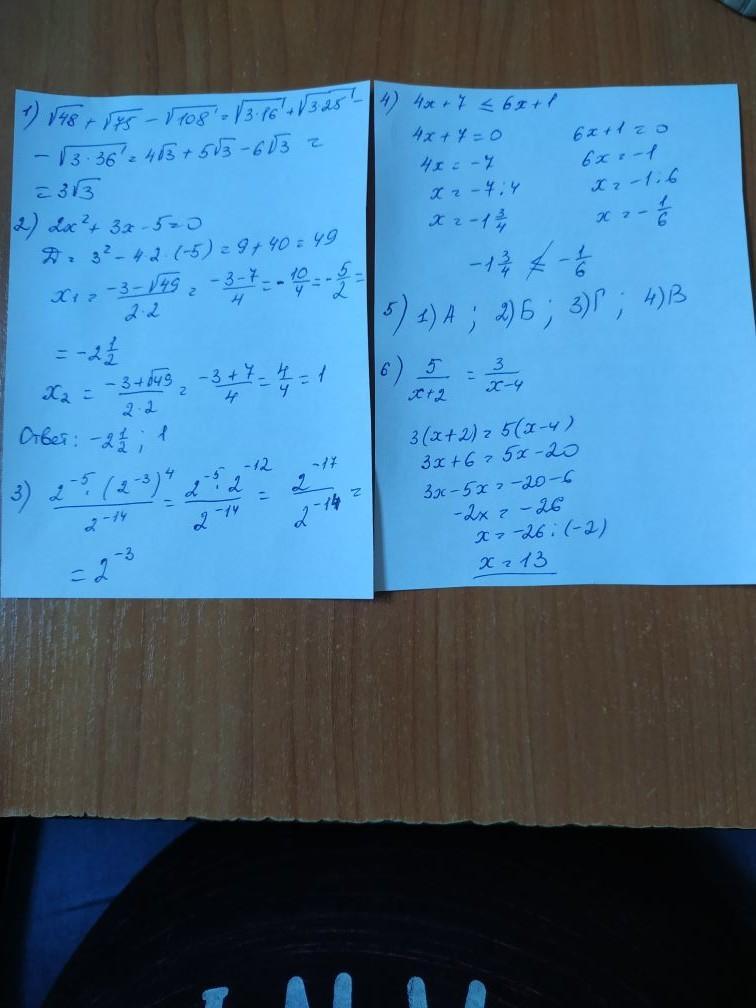 1) √48 + √75 − √108 = √3·16 + √3·25 −
− √3·36 = 4√3 + 5√3 − 6√3 =
= 3√3
2) 2x² + 3x - 5 = 0
D = 3² − 4·2·(−5) = 9 + 40 = 49
x₁ = (−3−√49)/(2·2) = (−3−7)/4 = −10/4 = −5/2 =
= −2 1/2
x₂ = (−3+√49)/(2·2) = (−3+7)/4 = 4/4 = 1
Ответ: −2 1/2 ; 1
3) (2⁻⁵·(2⁻³)⁴)/2⁻¹⁴ = (2⁻⁵·2⁻¹²)/2⁻¹⁴ = 2⁻¹⁷/2⁻¹⁴ =
= 2⁻³
4) 4x + 7 ≤ 6x + 1
4x + 7 = 0 6x + 1 = 0
4x = −7 6x = −1
x = −7 : 4 x = −1 : 6
x = −1 3/4 x = −1/6
−1 3/4 ≰ −1/6
5) 1) А ; 2) Б ; 3) Г ; 4) В
6) 5/(x+2) = 3/(x−4)
3(x+2) = 5(x−4)
3x + 6 = 5x − 20
3x − 5x = −20 − 6
−2x = −26
x = −26 : (−2)
x = 13